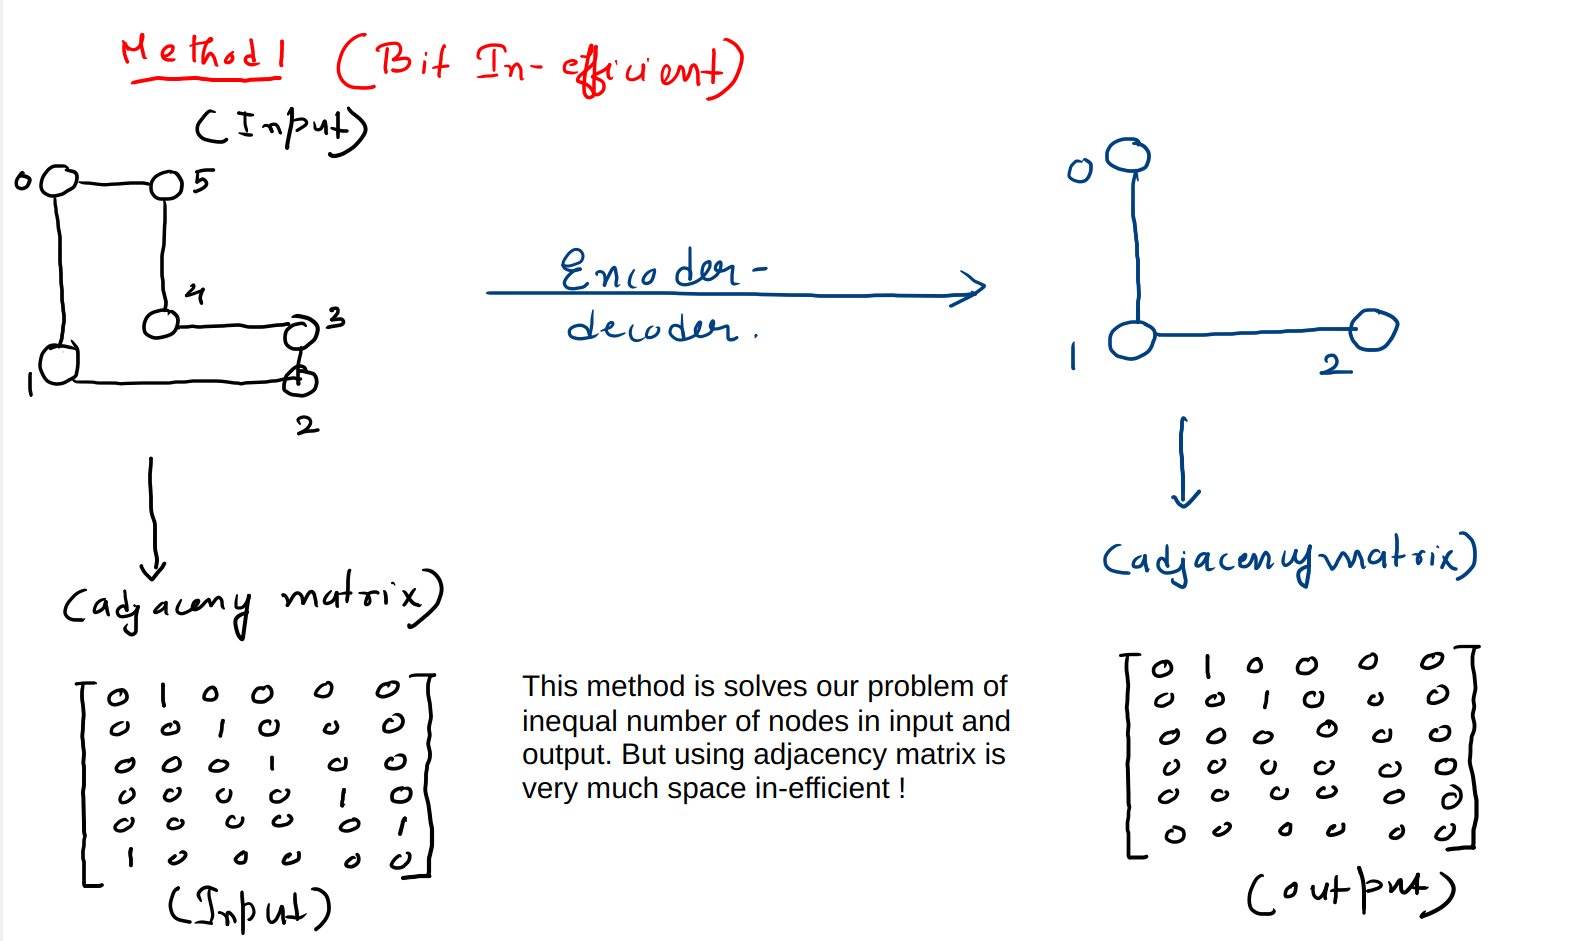 Method 1 (Bit In-efficient)
(Input)
0 5
4
3
1
2
Encoder-
decoder.
0
1
2
(adjaceny matrix)
0 1 0 0 0 0
0 0 1 0 0 0
0 0 0 1 0 0
0 0 0 0 1 0
0 0 0 0 0 1
1 0 0 0 0 0
(Input)
This method is solves our problem of
inequal number of nodes in input and
output. But using adjacency matrix is
very much space in-efficient !
(adjacency matrix)
0 1 0 0 0 0
0 0 1 0 0 0
0 0 0 0 0 0
0 0 0 0 0 0
0 0 0 0 0 0
0 0 0 0 0 0
(output)